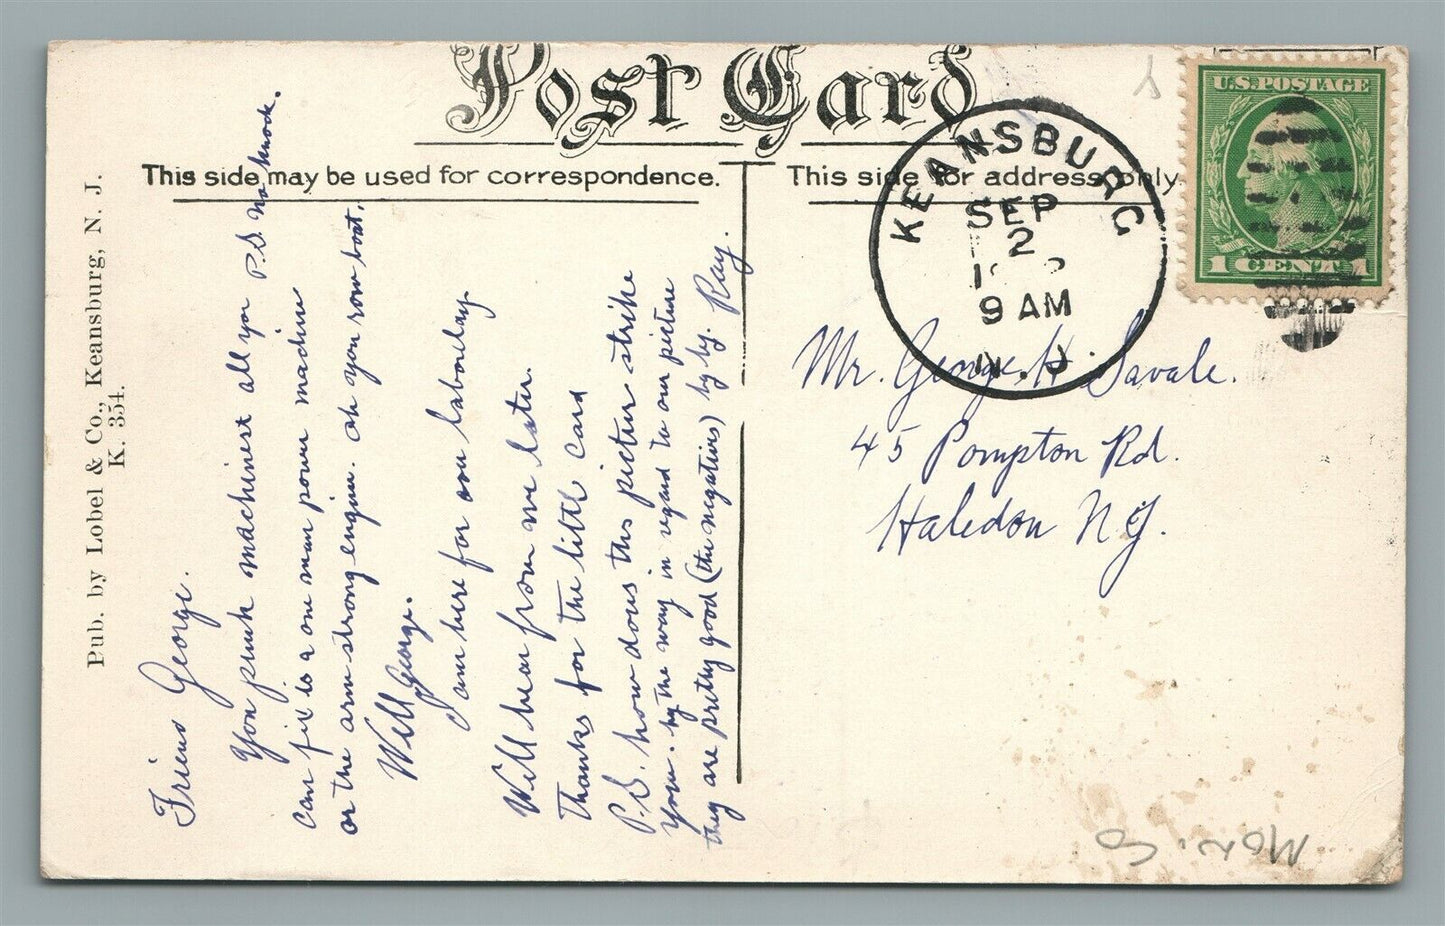 Post Card
This side may be used for correspondence.
This side for address only.
U.S. POSTAGE
1 CENT 1
KEANSBURG
SEP
2
9 AM
N.J.
Pub. by Lobel & Co., Keansburg, N. J.
K. 354.
Friend George.
You punk machinest all you P.S. No knock.
can fix is a one man power machine
or the arm strong engine. oh you row boat,
Well George.
I am here for over laborday.
Will hear from me later.
Thanks for the little card
P.S. how dous this pictur strike
your. by the way in regard to our picture
they are pretty good (the negatives) by by. Ray.
Mr. George H. Savale.
45 Pompton Rd.
Haledon N.J.
Mon. Co